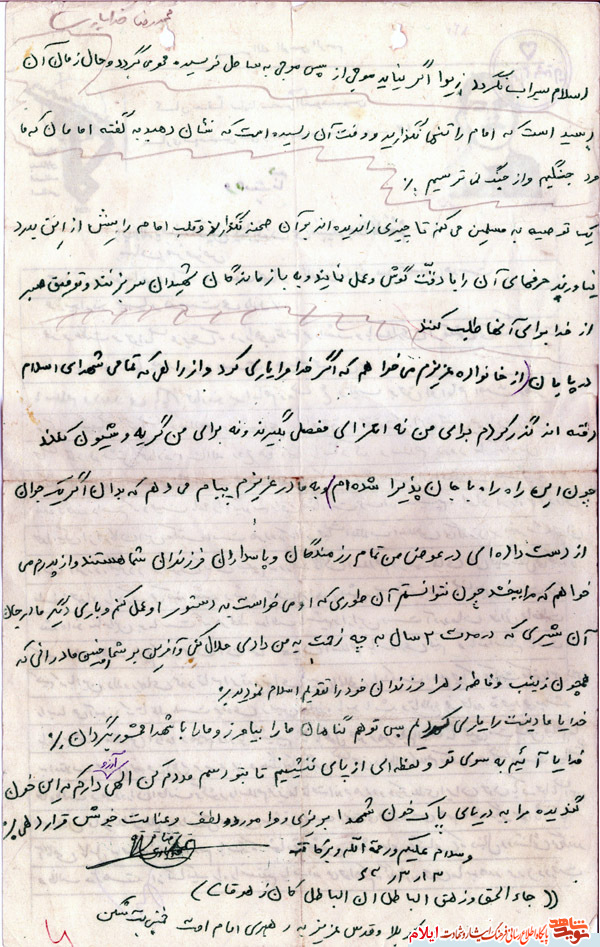 محمدرضا خدایاپرست
اسلام سیراب نگردد زیرا اگر نیاید موجی از پس موجی به ساحل نرسیده محو می گردد و حال زمان آن
رسید است که امام را تنهی نگذارید و وقت آن رسیده است که نشان دهید به گفته امامان که ما
مرد جنگیم و از جنگ نمی ترسیم ./
یک توصیه به مسلمین می کنم تا چیزی را ندیده اند بر آن صحنه نگذارند و قلب امام را بیش از این بدرد
نیاورند حرفهای آن را با دقت گوش و عمل نمایند و به بازماندگان شهیدان سر بزنند و توفیق صبر
از خدا برای آنها طلب کنند
در پایان (از خانواده عزیزم می خواهم که اگر خدا مرا یاری کرد و از راهی که تمامی شهدای اسلام
رفته اند گذر کردم برای من نه اعزای مفصل بگیرند و نه برای من گریه و شیون بکنند
چون این راه را با جان پذیرا شده ام) و به مادر عزیزم پیام می دهم که بدان اگر یک جوان
از دست داده ای در عوض من تمام رزمندگان و پاسداران فرزندان شما هستند و از پدرم می
خواهم که مرا ببخشد چون نتوانستم آن طوری که او می خواست به دستور او عمل کنم و باری دیگر مادر جان
آن شیری که در مدت ۲ سال به چه زحمت به من دادی حلال کنی و آفرین بر شما چنین مادرانی که
همچون زینب و فاطمه زهرا فرزندان خود را تقدیم اسلام نمودید ./
خدایا ما دینت را یاری کردیم پس تو هم گناهان ما را بیامرز و ما را با شهدا محشور بگردان ./
خدایا آئیم به سوی تو و لحظه ای از پای ننشینیم تا بتو رسم مددم کن الهی آرزو دارم که این خون
گندیده مرا به دریای پاک خون شهدا بریزی و مورد لطف و عنایت خویش قرار دهی ./
وسلام علیکم و رحمة الله و برکاته
((جاء الحق و زهق الباطل ان الباطل کان زهوقا))
کربلا و قدس عزیز به رهبری امام امت خمینی بت شکن
نوید شاهد
پایگاه اطلاع رسانی فرهنگ ایثار و شهادت ایلام